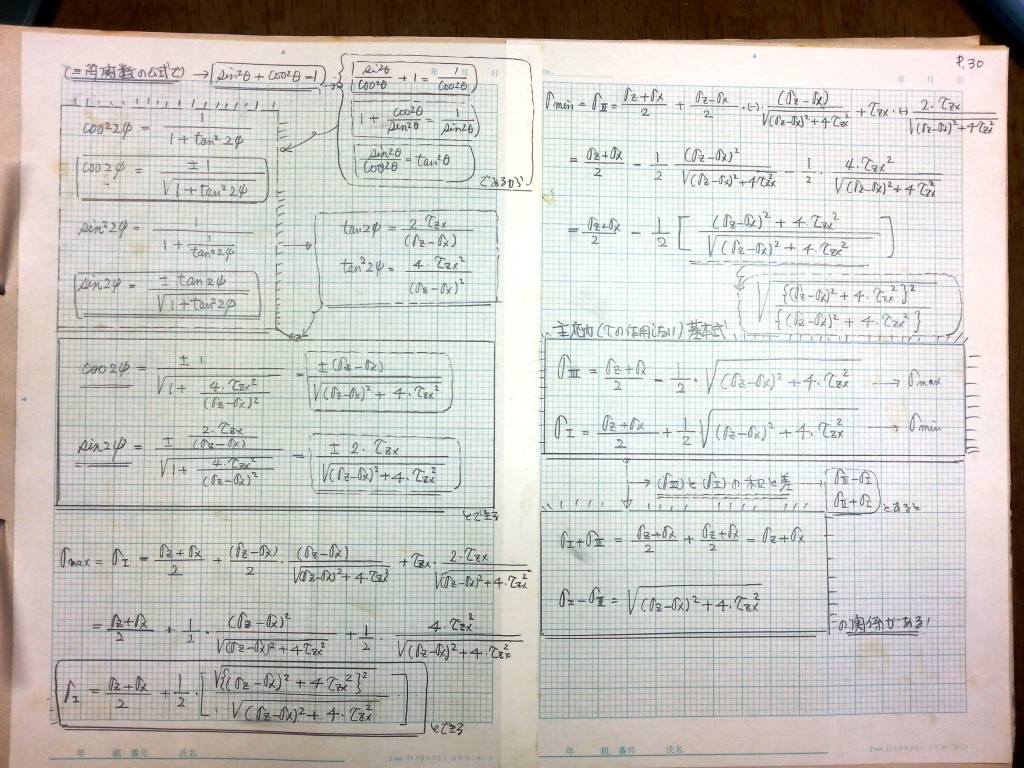 (三角函数の公式で) → sin²θ + cos²θ = 1 → sin²θ/cos²θ + 1 = 1/cos²θ
1 + cos²θ/sin²θ = 1/sin²θ
sin²θ/cos²θ = tan²θ
であるから
cos²2φ = 1/(1 + tan²2φ)
cos2φ = ±1/√(1 + tan²2φ)
sin²2φ = 1/(1 + 1/tan²2φ)
sin2φ = ±tan2φ/√(1 + tan²2φ)
tan2φ = 2·τzx/(σz−σx)
tan²2φ = 4·τzx²/(σz−σx)²
cos2φ = ±1/√(1 + 4·τzx²/(σz−σx)²) = ±(σz−σx)/√((σz−σx)² + 4·τzx²)
sin2φ = ± (2·τzx/(σz−σx))/√(1 + 4·τzx²/(σz−σx)²) = ±2·τzx/√((σz−σx)² + 4·τzx²)
とできる
σmax = σI = (σz+σx)/2 + (σz−σx)/2 · (σz−σx)/√((σz−σx)² + 4·τzx²) + τzx · 2·τzx/√((σz−σx)² + 4·τzx²)
= (σz+σx)/2 + 1/2 · (σz−σx)²/√((σz−σx)² + 4τzx²) + 1/2 · 4·τzx²/√((σz−σx)² + 4·τzx²)
σI = (σz+σx)/2 + 1/2 · [√{(σz−σx)² + 4τzx²}²/√((σz−σx)² + 4·τzx²)]
とできる
年 組 番号 氏名
P.30
年 月 日
σmin = σIII = (σz+σx)/2 + (σz−σx)/2 ·(−)· (σz−σx)/√((σz−σx)² + 4τzx²) + τzx·(−) 2·τzx/√((σz−σx)² + 4τzx²)
= (σz+σx)/2 − 1/2 · (σz−σx)²/√((σz−σx)² + 4τzx²) − 1/2 · 4·τzx²/√((σz−σx)² + 4τzx²)
= (σz+σx)/2 − 1/2 [((σz−σx)² + 4·τzx²)/√((σz−σx)² + 4·τzx²)]
√({(σz−σx)² + 4·τzx²}²/{(σz−σx)² + 4·τzx²})
主応力(τの作用しない)基本式
σIII = (σz+σx)/2 − 1/2 · √((σz−σx)² + 4·τzx²) → σmax
σI = (σz+σx)/2 + 1/2 √((σz−σx)² + 4·τzx²) → σmin
→ (σIII)と(σI)の和と差 → σIII−σI
σI+σIII
とすると
σI+σIII = (σz+σx)/2 + (σz+σx)/2 = σz+σx
σI−σIII = √((σz−σx)² + 4·τzx²)
の関係がある!
年 組 番号 氏名